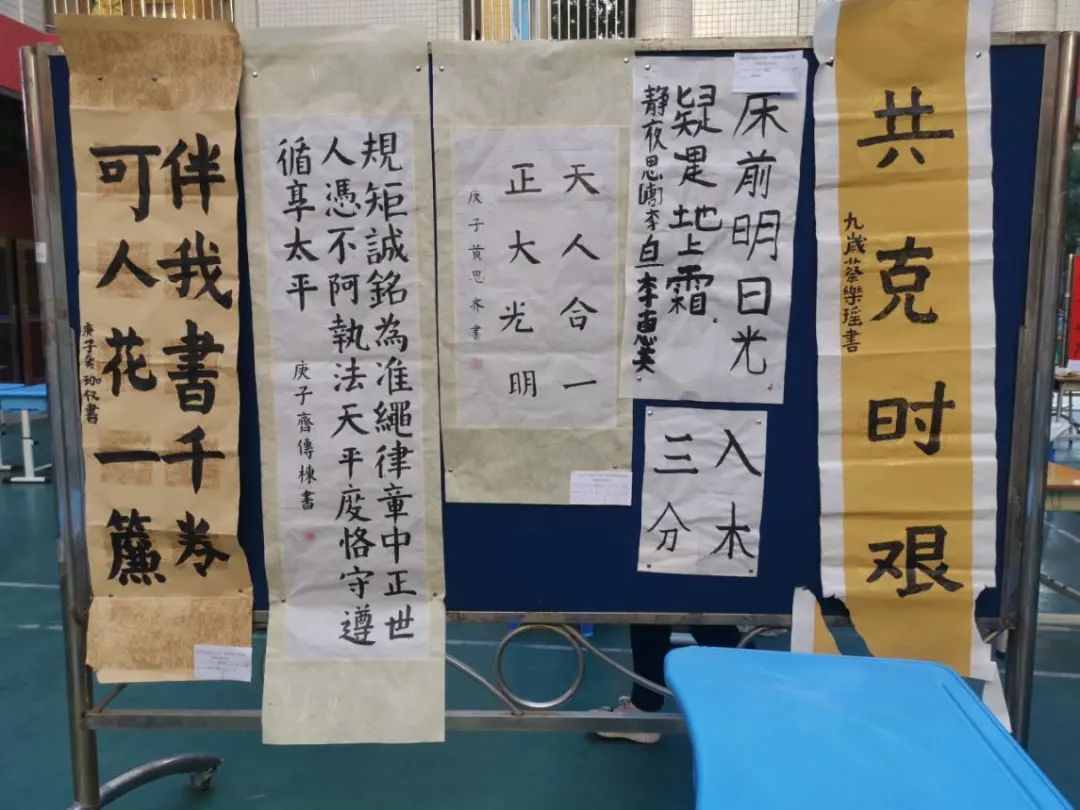 伴我書千券
可人花一簾
庚子 書
規矩誠銘為准繩律章中正世
人憑不阿執法天平度恪守遵
循享太平
庚子齊傳棟書
天人合一
正大光明
庚子黄思 書
床前明日光
疑是地上霜.
静夜思 李白 李
入木
三分
共克时艰
九歲蔡樂瑶書